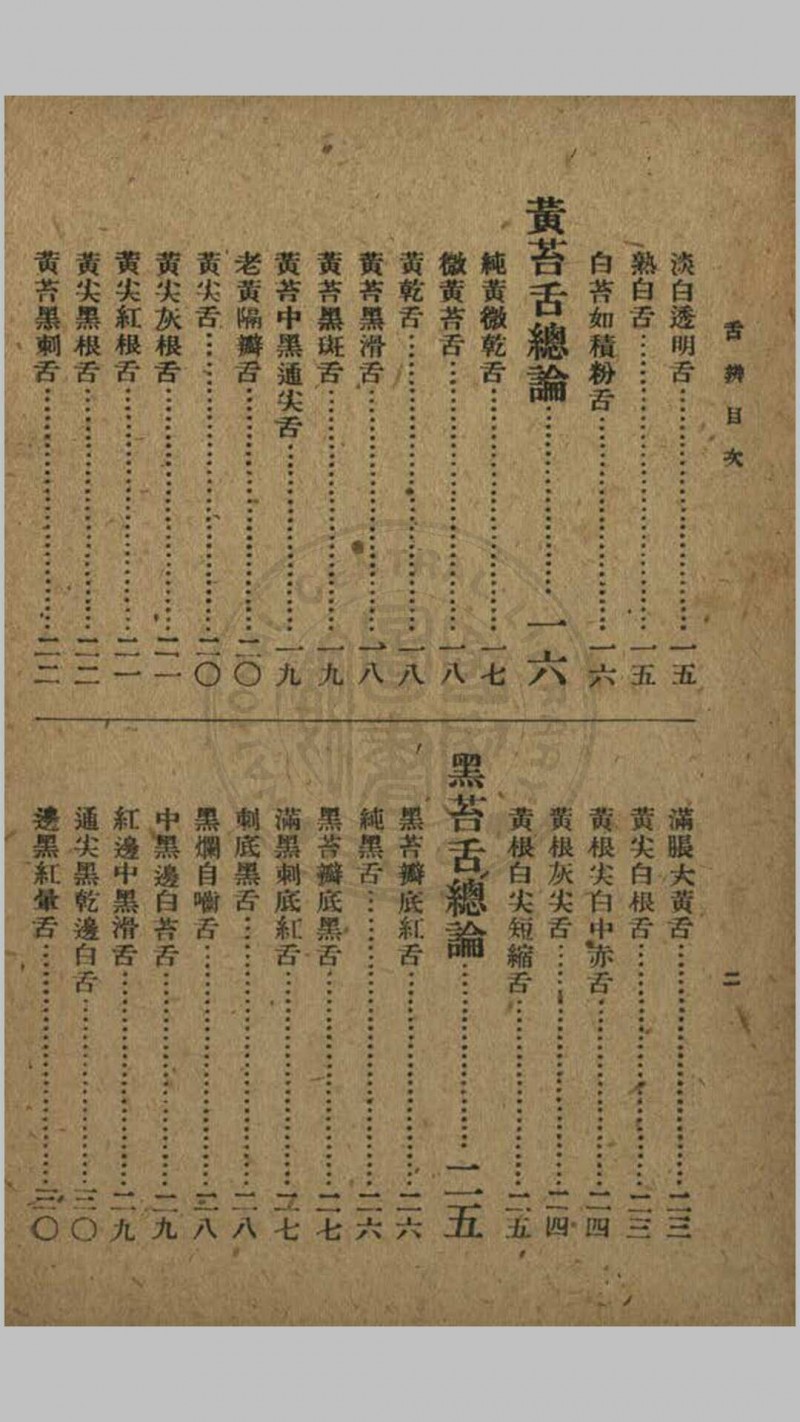 舌辨目次
淡白透明舌……一五
熟白舌……一五
白苔如積粉舌……一六
黃苔舌總論……一六
純黃微乾舌……一七
微黃苔舌……一八
黃乾舌……一八
黃苔黑滑舌……一八
黃苔黑斑舌……一九
黃苔中黑通尖舌……一九
老黃隔瓣舌……二〇
黃尖舌……二〇
黃尖灰根舌……二一
黃尖紅根舌……二一
黃尖黑根舌……二二
黃苔黑刺舌……二二
滿脹大黃舌……二三
黃尖白根舌……二三
黃根尖白中赤舌……二四
黃根灰尖舌……二四
黃根白尖短縮舌……二五
黑苔舌總論……二五
黑苔瓣底紅舌……二六
純黑舌……二六
黑苔瓣底黑舌……二七
滿黑刺底紅舌……二七
刺底黑舌……二八
黑爛自嚙舌……二八
中黑邊白苔舌……二九
紅邊中黑滑舌……二九
通尖黑乾邊白舌……三〇
邊黑紅暈舌……三〇
二